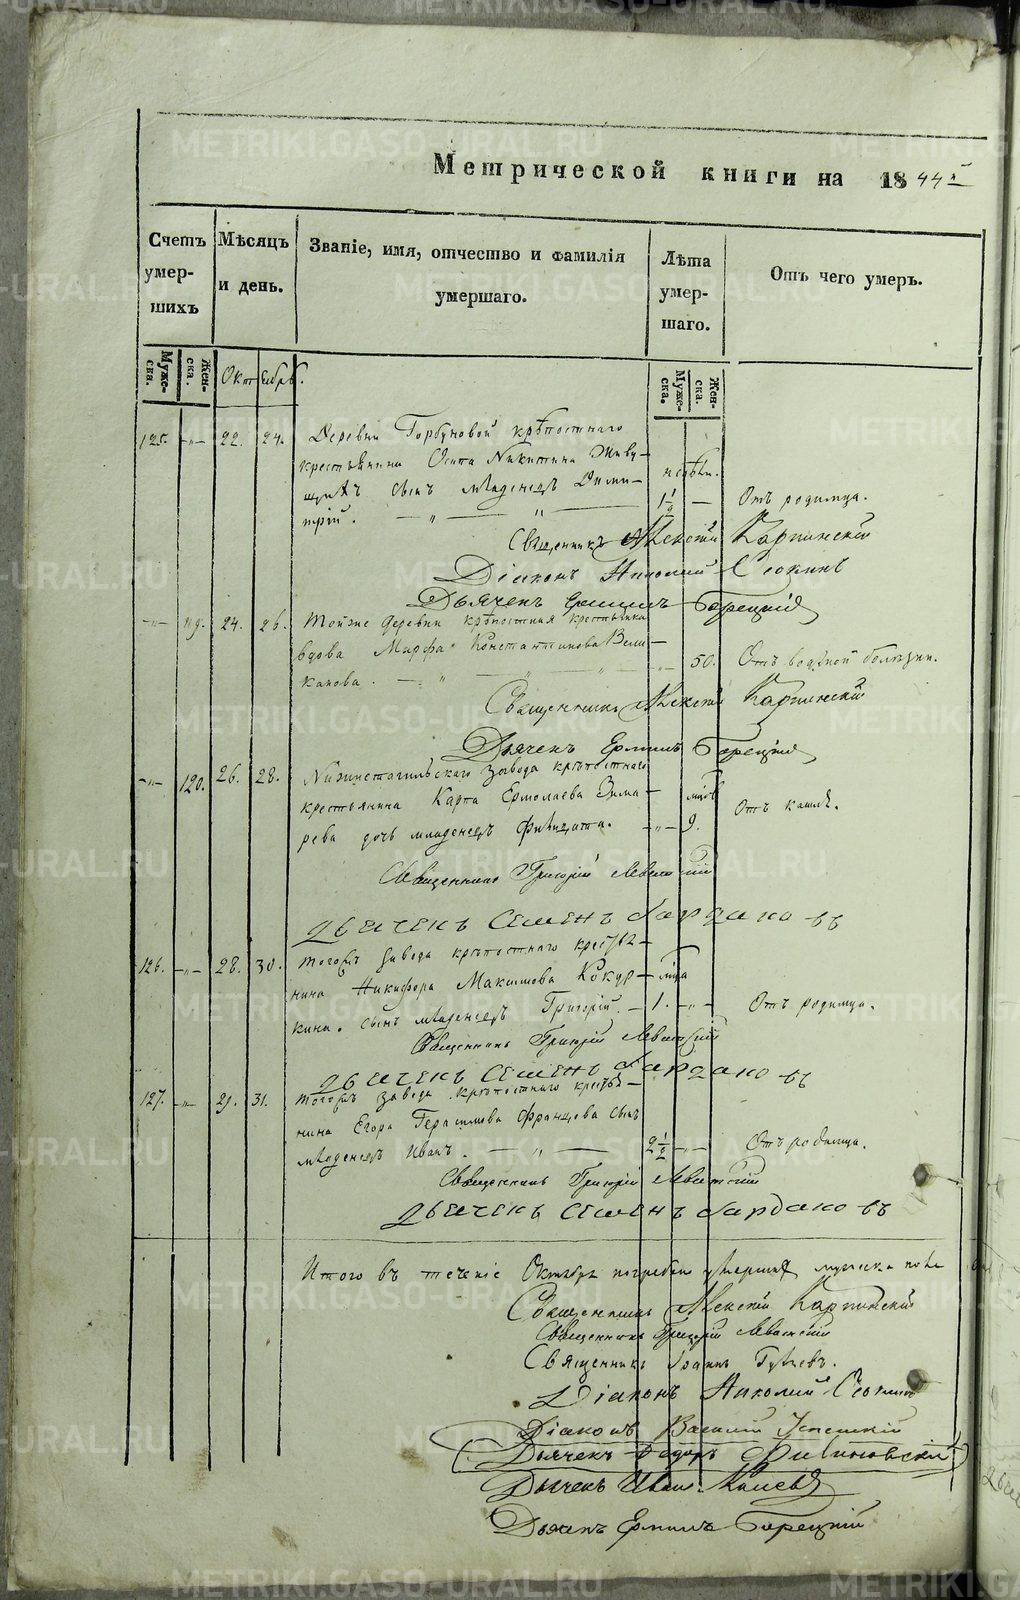 Метрической книги на 1844й
Счетъ умер- шихъ
Мѣсяцъ и день.
Званіе, имя, отчество и фамилія умершаго.
Лѣта умер- шаго.
Отъ чего умеръ.
Муже- ска.
Жен- ска.
Октябрь.
Муже- ска.
Жен- ска.
125. —"— 22. 24. Деревни Горбуновой крѣпостнаго
крестьянина Осипа Никитина Живу-
сынъ младенецъ Дими-
трій. — " — " —
недѣли.
1½ — Отъ родимца.
Священникъ Алексѣй Карпинскій
Діаконъ Николай
Дьячекъ Ермилъ Борецкій
—"— 119. 24. 26. Тойже деревни крѣпостная крестьянка
вдова Марфа Константинова Вели-
канова. — " — " — 50. Отъ водяной болѣзни.
Священникъ Алексѣй Карпинскій
Дьячекъ Ермилъ Борецкій
—"— 120. 26. 28. Нижнетагильскаго завода крѣпостнаго
крестьянина Карпа Ермолаева
дочь младенецъ Фелицата. —"— 9. Отъ кашля.
Священникъ Григорій Левитскій
Дьячекъ Семенъ
126. —"— 28. 30. Тогожъ завода крѣпостнаго кресть-
нина Никифора Максимова Кокур-
кина сынъ младенецъ Григорій. — 1. —"— Отъ родимца.
Священникъ Григорій Левитскій
Дьячекъ Семенъ
127. —"— 29. 31. Тогожъ завода крѣпостнаго крестья-
нина Егора Герасимова Францова сынъ
младенецъ Иванъ. — " — 2½ —"— Отъ родимца.
Священникъ Григорій Левитскій
Дьячекъ Семенъ
Итого въ теченіе Октября погребено умершихъ мужска пола
Священникъ Алексѣй Карпинскій
Священникъ Григорій Левитскій
Священникъ Іоаннъ
Діаконъ Николай
Діаконъ Василій
Дьячекъ Федоръ
Дьячекъ Иванъ
Дьячекъ Ермилъ Борецкій
METRIKI.GASO-URAL.RU